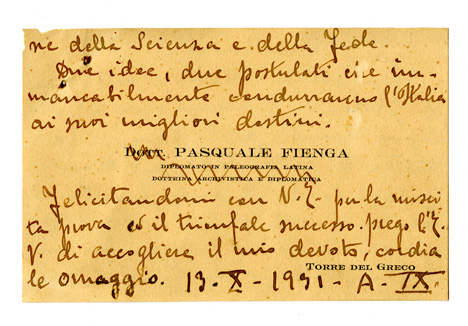 ne della Scienza e della Fede.
Due idee, due postulati che im-
mancabilmente condurranno l'Italia
ai suoi migliori destini.
Dott. PASQUALE FIENGA
DIPLOMATO IN PALEOGRAFIA LATINA
DOTTRINA ARCHIVISTICA E DIPLOMATICA
Felicitandomi con V. E. per la riusci-
ta prova ed il trionfale successo, prego l'E.
V. di accogliere il mio devoto, cordia
le omaggio. 13-X-1931-A-IX.
TORRE DEL GRECO